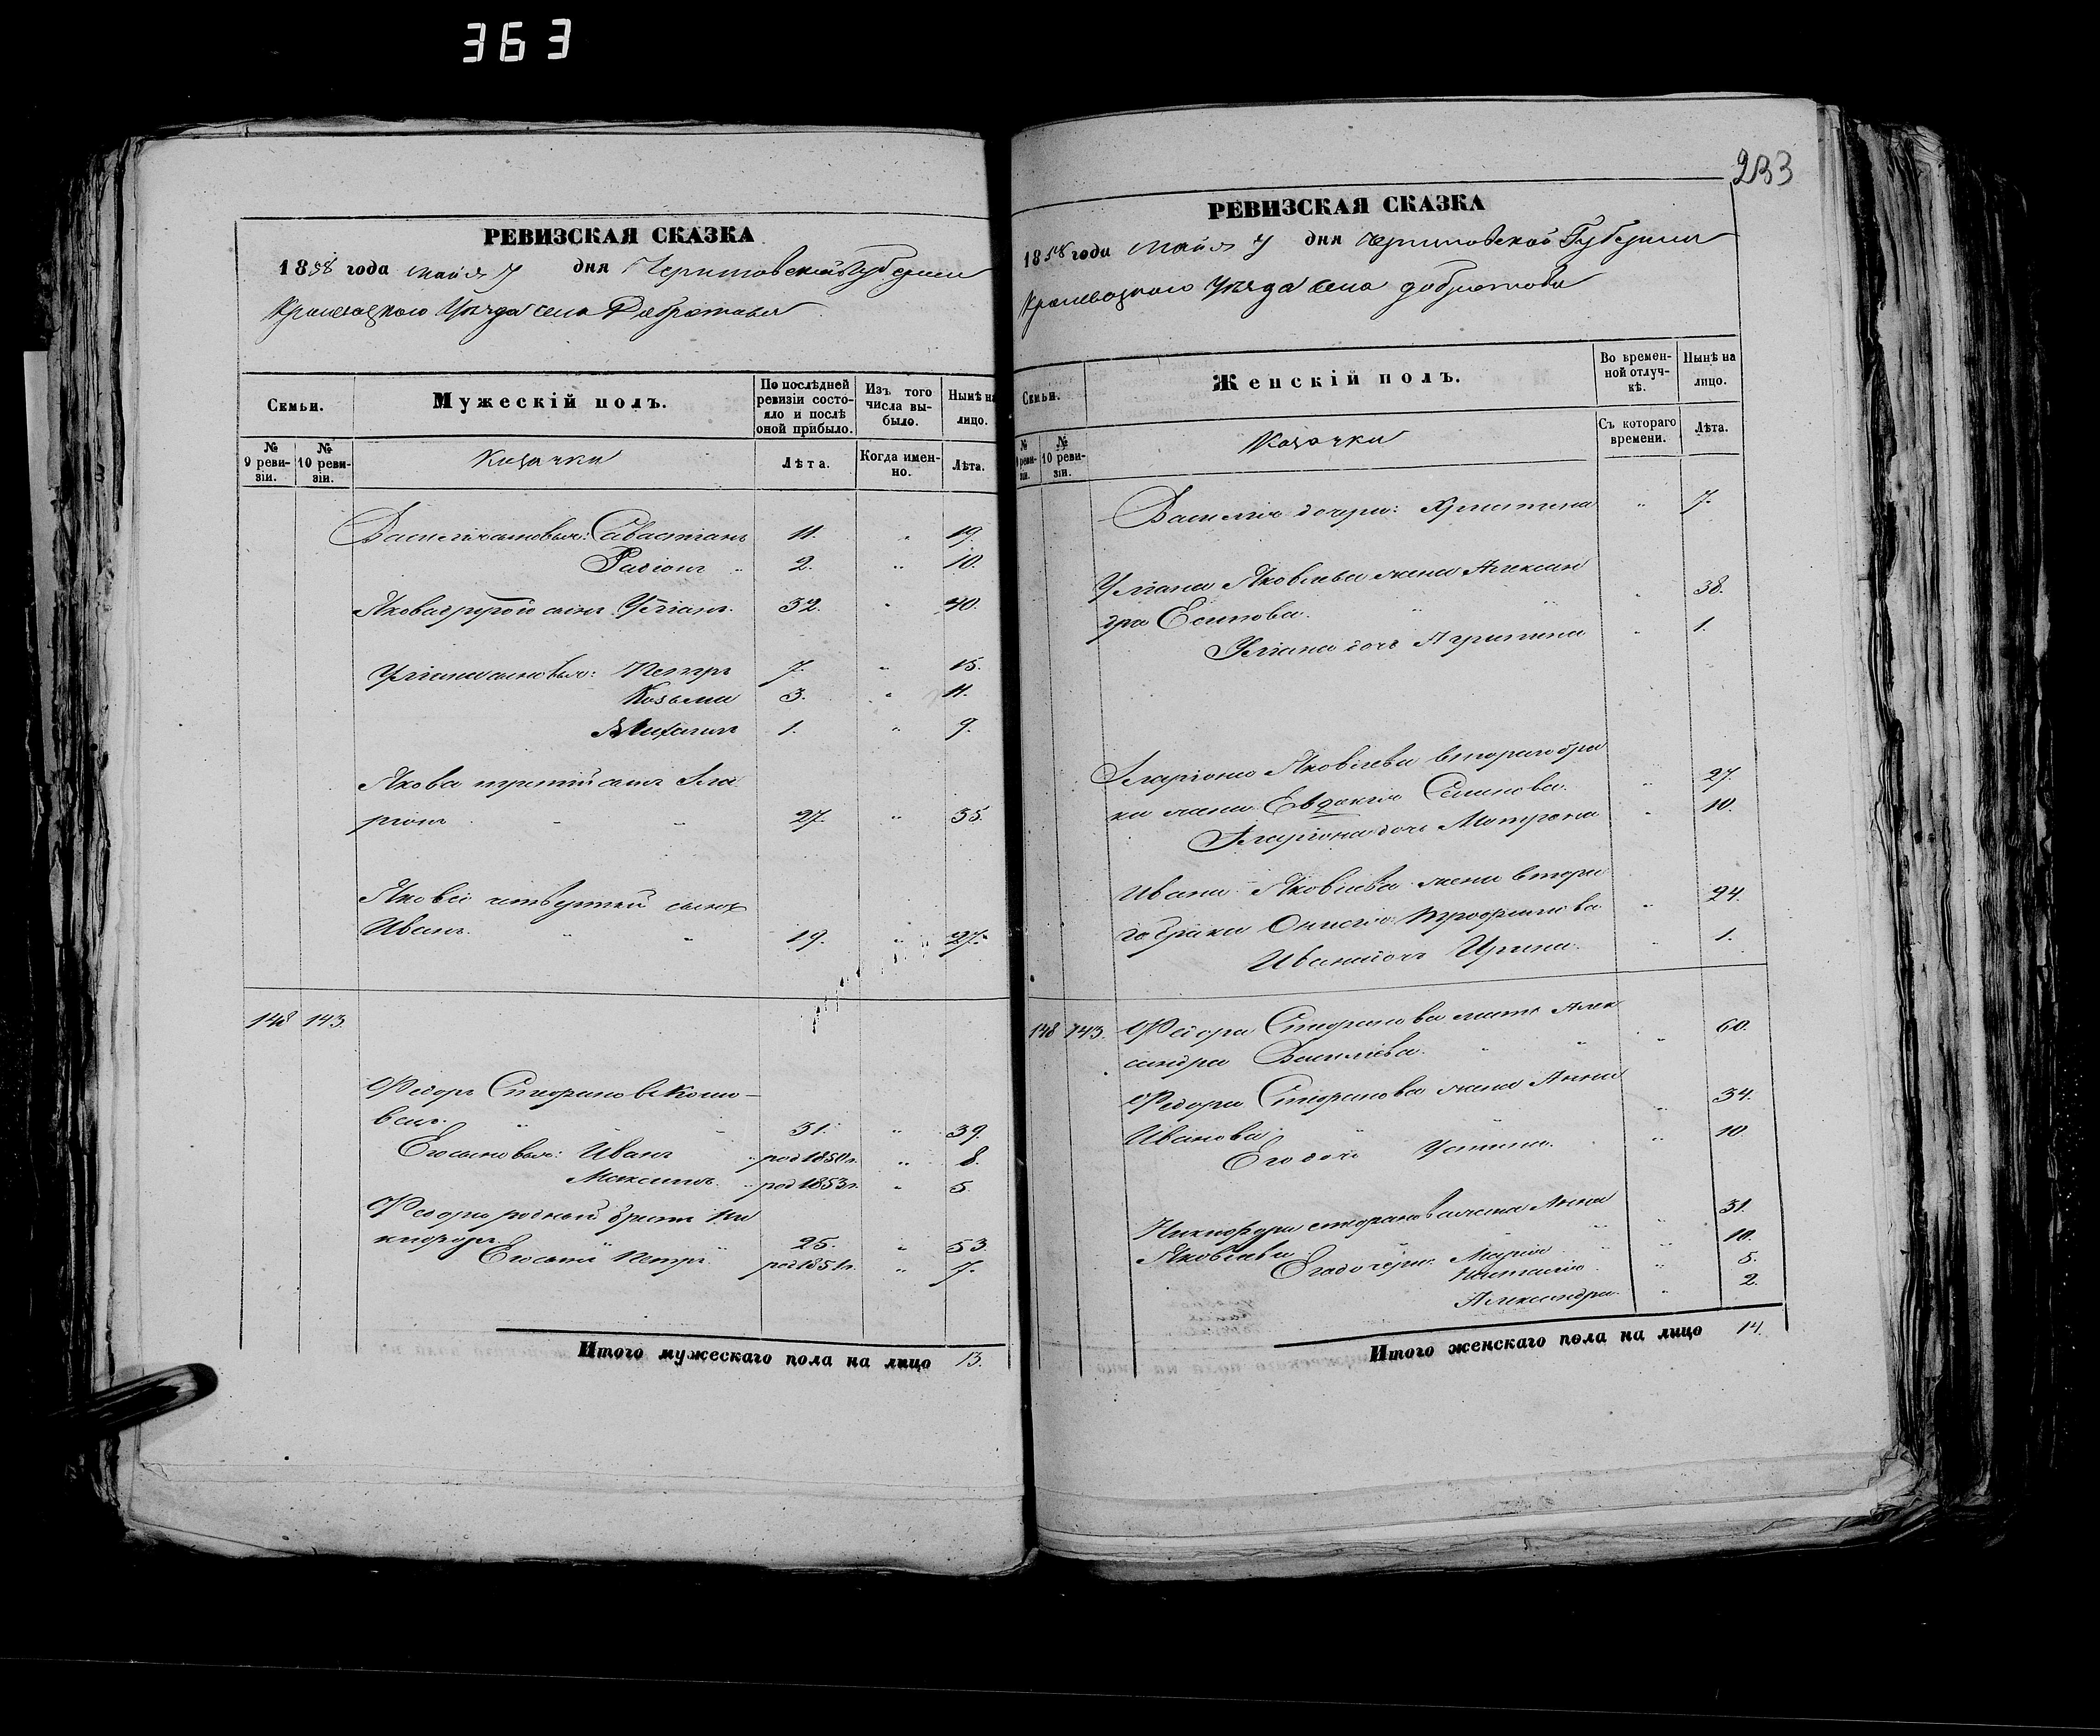 363
РЕВИЗСКАЯ СКАЗКА
1858 года мая 7 дня Черниговской Губернии
Кролевецкого Уезда села Добротова
Семьи.
Мужескій полъ.
По послѣдней ревизіи состояло и послѣ оной прибыло.
Изъ того числа выбыло.
Нынѣ на лицо.
№ 9 ревизіи.
№ 10 ревизіи.
Козачки
Лѣта.
Когда именно.
Лѣта.
Василія сыновья: Савастіанъ 11. „ 19.
Радіонъ „ 2. „ 10.
Якова другой сынъ Уліанъ. 32. „ 40.
Уліана сыновья: Петръ 7. „ 15.
Козьма 3. „ 11.
Михаилъ 1. „ 9.
Якова третій сынъ Ила
ріонъ „ „ 27. „ 35.
Якова четвертый сынъ
Иванъ. „ „ 19. „ 27.
148 143.
Федоръ Стефановъ
31. „ 39.
Его сыновья: Иванъ „ род 1850 г. „ 8.
Максимъ. „ род 1853 г. „ 5.
Федора родный братъ Ни
кифоръ. 25. „ 33.
Его сынъ Петръ. „ род 1851 г. „ 7.
Итого мужескаго пола на лицо 13.
233
РЕВИЗСКАЯ СКАЗКА
1858 года мая 7 дня Черниговской Губернии
Кролевецкого Уезда села Добротова
Семьи.
Женскій полъ.
Во временной отлучкѣ.
Нынѣ на лицо.
№ 9 ревизіи.
№ 10 ревизіи.
Козачки
Съ котораго времени.
Лѣта.
Василія дочери: Христина „ 7.
Уліана Яковлева жена Алексан
дра Есипова. „ „ „ 38.
Уліана дочь Агрипина „ 1.
Иларіона Яковлева втораго бра
ка жена Евдокія Семинова. „ 27.
Иларіона дочь Матрона „ 10.
Ивана Яковлева жена втора
го брака Онисія Трофимова „ 24.
Ивана дочь Ирина. „ 1.
148 143. Федора Стефанова мать Алек
сандра Василіева. „ „ „ 60.
Федора Стефанова жена Анна
Иванова „ „ 34.
Его дочь Устина. „ 10.
Никифора Стефанова жена Анна
Яковлева „ „ 31.
Его дочери: Марія „ „ 10.
Наталія „ „ 5.
Александра. „ 2.
Итого женскаго пола на лицо 14.